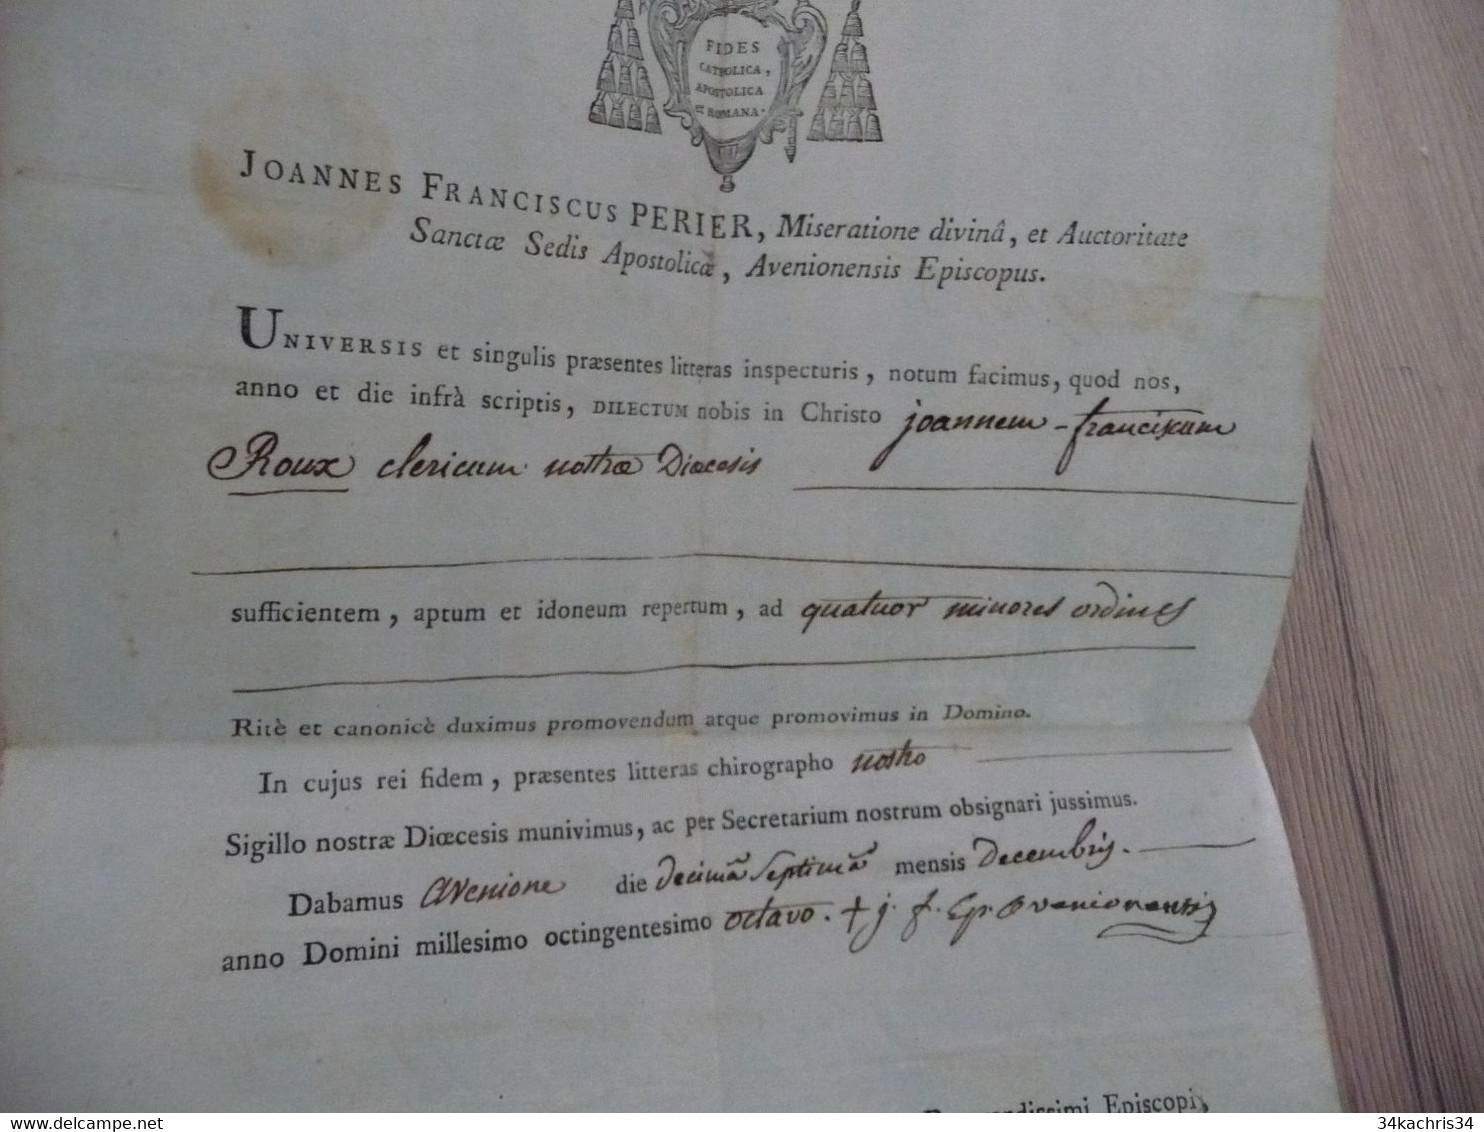 FIDES
CATHOLICA,
APOSTOLICA
et ROMANA.
JOANNES FRANCISCUS PERIER, Miseratione divinâ, et Auctoritate
Sanctæ Sedis Apostolicæ, Avenionensis Episcopus.
UNIVERSIS et singulis præsentes litteras inspecturis, notum facimus, quod nos,
anno et die infrà scriptis, DILECTUM nobis in Christo joannem-franciscum
Roux clericum nostræ Diœcesis
sufficientem, aptum et idoneum repertum, ad quatuor minores ordines
Ritè et canonicè duximus promovendum atque promovimus in Domino.
In cujus rei fidem, præsentes litteras chirographo nostro
Sigillo nostræ Diœcesis munivimus, ac per Secretarium nostrum obsignari jussimus.
Dabamus avenione die decimâ Septimâ mensis Decembris.
anno Domini millesimo octingentesimo octavo. + j. f. Ep. avenionensis
Episcopi,
delcampe.net
34kachris34